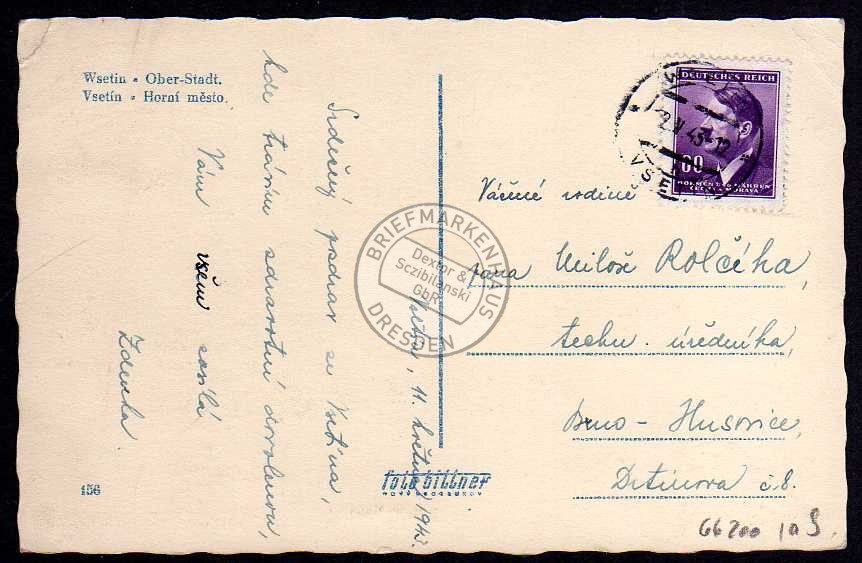 Wsetin - Ober-Stadt.
Vsetín - Horní město.
Vsetín, 11. května 1943.
Srdečný pozdrav ze Vsetína,
kde trávím zdravotní dovolenou,
Vám všem zasílá
Zdenka.
156
foto bittner
DEUTSCHES REICH
60
BÖHMEN UND MÄHREN
ČECHY A MORAVA
43-12
VSE
BRIEFMARKENHAUS
Dextor &
Sczibilanski
GbR
DRESDEN
Vážené rodině
pana Miloše Rolčíka,
techn. úředníka,
Brno - Husovice,
č. 8.
66200 10